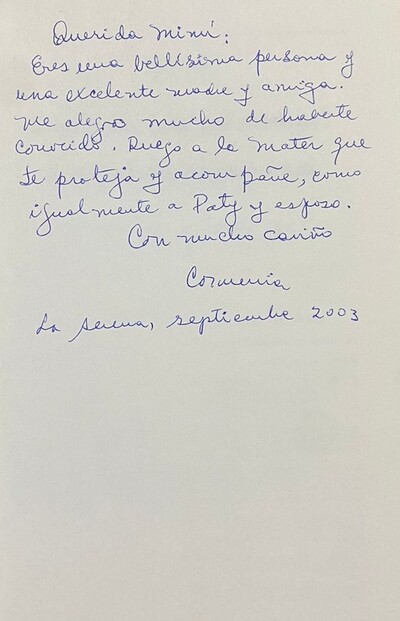 Querida Mimí:
Eres una bellísima persona y
una excelente madre y amiga.
Me alegro mucho de haberte
conocido. Ruego a la Mater que
te proteja y acompañe, como
igualmente a Paty y esposo.
Con mucho cariño
La Serena, septiembre 2003